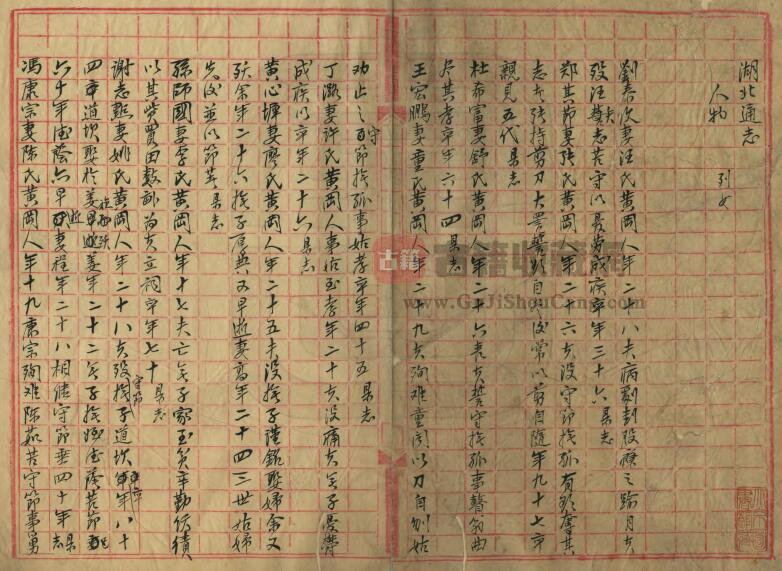 湖北通志
人物　列女
劉泰次妻汪氏黃岡人年二十八夫病劇刲股療之踰月夫
歿汪矢志苦守以哀毀成疾卒年三十六 縣志
鄭其節妻張氏黃岡人年二十六夫沒守節撫孤有欲奪其
志者張持剪刀大詈誓欲自
後常以剪自隨年九十七卒
親見五代 縣志
杜希富妻舒氏黃岡人年二十六喪夫誓守撫孤事瞽翁曲
尽其孝卒年六十四 縣志
王宏鵬妻童氏黃岡人年二十九夫殉難童聞以刀自刎姑
劝止之守節撫孤事姑孝卒年四十五 縣志
丁潞妻許氏黃岡人事姑至孝年二十夫沒痛夫無子憂鬱
成疾以卒年二十六 縣志
黃心墀妻廖氏黃岡人年二十五夫没撫子謹銘娶婦余又
歿余年二十六撫子
典又早逝妻高年二十四三世姑婦
先後並以節著 縣志
孫師國妻李氏黃岡人年十七夫亡無子家至貧辛勤紡績
以其貲買田數畝為夫立祠卒年七十 縣志
謝志
妻姚氏黃岡人年二十八夫歿守節撫子道坎卒年八十
四道坎娶於姜早逝姜年二十二無子撫姪
蔭苦節
六十年
蔭亦早逝妻程年二十八相繼守節垂四十年 縣志
馮康宗妻陳氏黃岡人年十九康宗殉難陳茹苦守節事舅
古籍收藏网
www.GuJiShouCang.com